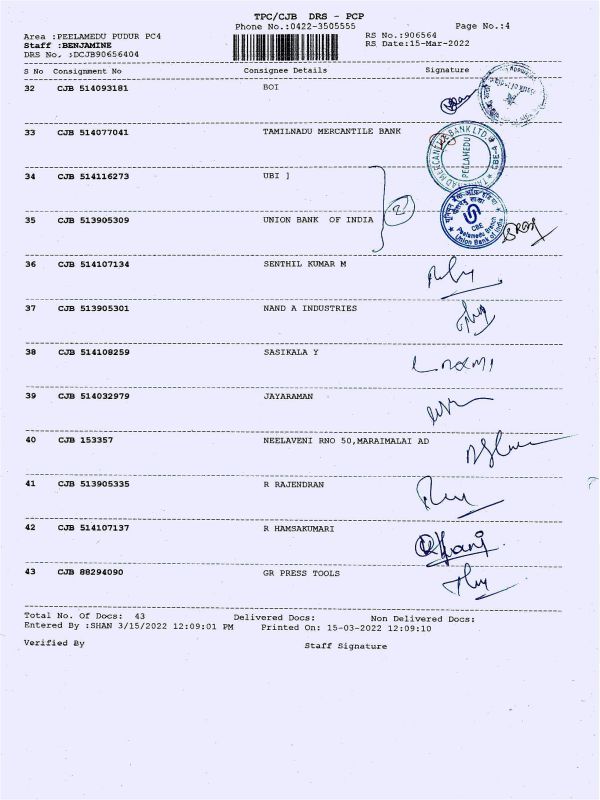 TPC/CJB DRS - PCP
Phone No.:0422-3505555 Page No.:4
Area :PEELAMEDU PUDUR PC4 RS No.:906564
Staff :BENJAMINE RS Date:15-Mar-2022
DRS No, :DCJB90656404
S No Consignment No Consignee Details Signature
32 CJB 514093181 BOI
33 CJB 514077041 TAMILNADU MERCANTILE BANK
TAMILNAD MERCANTILE BANK LTD. CBE-4
PEELAMEDU
34 CJB 514116273 UBI ]
2
35 CJB 513905309 UNION BANK OF INDIA
CBE
Peelamedu Branch
Union Bank of India
36 CJB 514107134 SENTHIL KUMAR M
37 CJB 513905301 NAND A INDUSTRIES
38 CJB 514108259 SASIKALA Y
39 CJB 514032979 JAYARAMAN
40 CJB 153357 NEELAVENI RNO 50,MARAIMALAI AD
41 CJB 513905335 R RAJENDRAN
42 CJB 514107137 R HAMSAKUMARI
43 CJB 88294090 GR PRESS TOOLS
Total No. Of Docs: 43 Delivered Docs: Non Delivered Docs:
Entered By :SHAN 3/15/2022 12:09:01 PM Printed On: 15-03-2022 12:09:10
Verified By Staff Signature